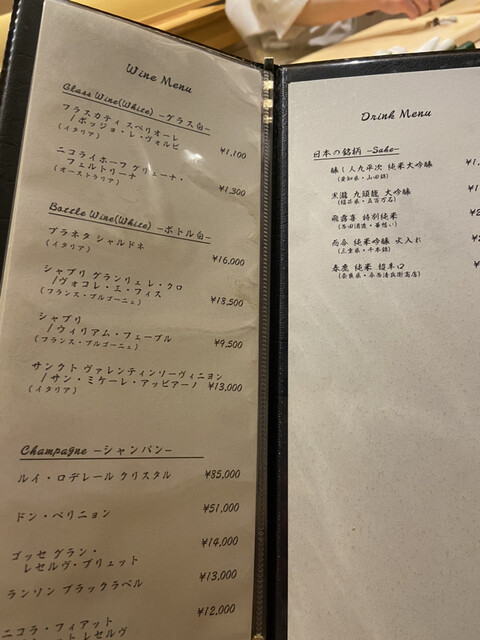 Wine Menu
Glass Wine(White) -グラス白-
フラスカティ スペリオーレ
/ポッジョ・レ・ヴォルピ
(イタリア)
¥1,100
ニコライホーフ グリューナ・
フェルトリーナ
(オーストラリア)
¥1,300
Bottle Wine(White) -ボトル白-
プラネタ シャルドネ
(イタリア)
¥16,000
シャブリ グランリェレ・クロ
/ヴォコレ・エ・フィス
(フランス・ブルゴーニュ)
¥18,500
シャブリ
/ウィリアム・フェーブル
(フランス・ブルゴーニュ)
¥9,500
サンクト ヴァレンティンソーヴィニヨン
/サン・ミケーレ・アッピアーノ ¥13,000
(イタリア)
Champagne -シャンパン-
ルイ・ロデレール クリスタル ¥85,000
ドン・ペリニョン ¥51,000
ゴッセ グラン・
レセルヴ・ブリェット
¥14,000
ランソン ブラックラベル ¥13,000
ニコラ・フィアット
レセルヴ
¥12,000
Drink Menu
日本の銘柄 -Sake-
醸し人九平次 純米大吟醸
(愛知県・山田錦)
黒龍 九頭龍 大吟醸
(福井県・五百万石)
飛露喜 特別純米
而今 純米吟醸 火入れ
(三重県・千本錦)
春鹿 純米 超辛口
(奈良県・今西清兵衛商店)